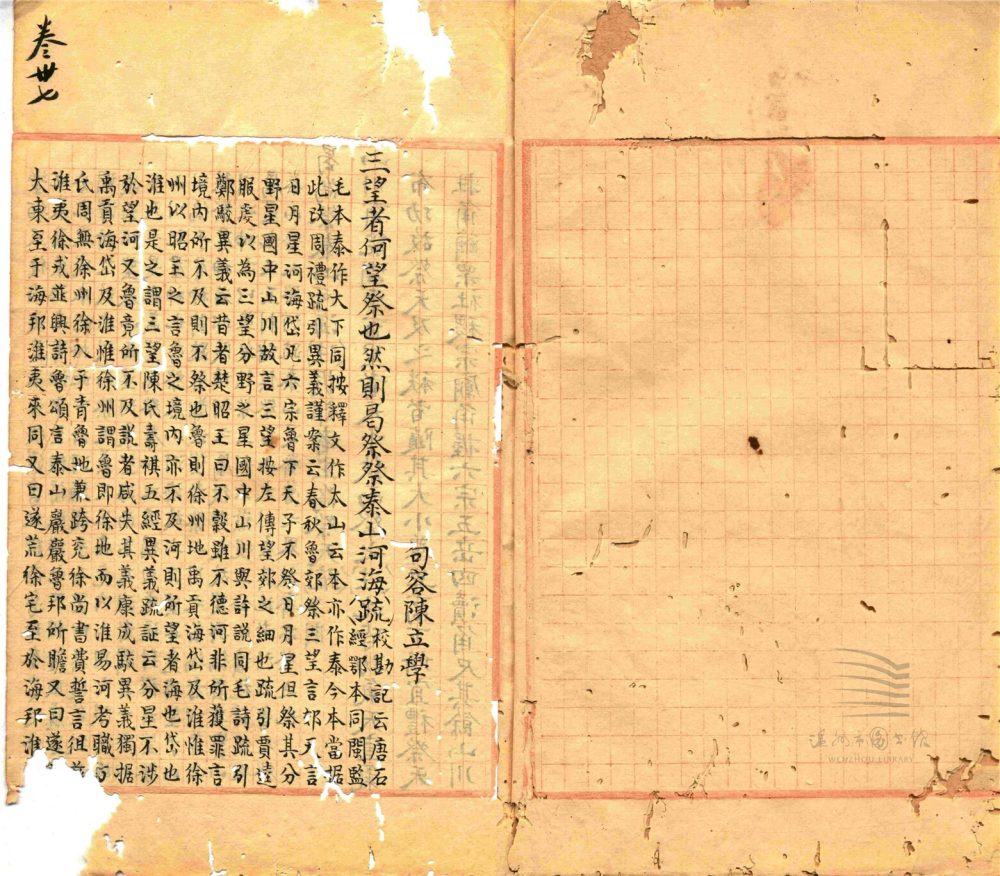 卷卌七
句容陳立學
三望者何望祭也然則曷祭祭泰山河海(疏)校勘記云唐石
經鄂本同閩監
毛本泰作大下同按釋文作太山云本亦作泰今本當据
此改周禮疏引異義謹案云春秋魯郊祭三望言郊天言
日月星河海岱凡六宗魯下天子不祭日月星但祭其分
野星國中山川故言三望按左傳望郊之細也疏引賈逵
服虔以為三望分野之星國中山川與許說同毛詩疏引
鄭駮異義云昔者楚昭王曰不穀雖不德河非所獲罪言
境內所不及則不祭也魯則徐州地禹貢海岱及淮惟徐
州以昭王之言魯之境內亦不及河則所望者海也岱也
淮也是之謂三望陳氏壽祺五經異義疏証云分星不涉
於望河又魯竟所不及說者咸失其義康成駮異義獨据
禹貢海岱及淮惟徐州謂魯即徐地而以淮易河考職方
氏周無徐州徐入于青魯地兼跨兗徐尚書費誓言徂茲
淮夷徐戎並興詩魯頌言泰山巖巖魯邦所瞻又曰遂
大東至于海邦淮夷來同又曰遂荒徐宅至於海邦淮
温州市图书馆
WENZHOU LIBRARY